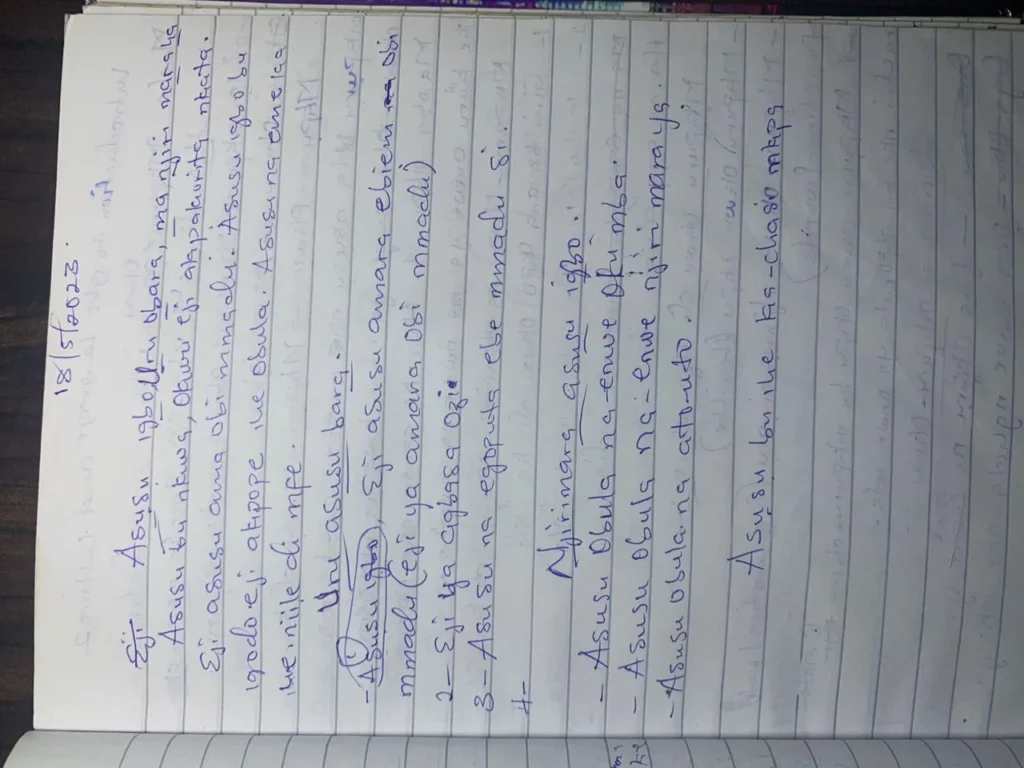 18/5/2023.
Eji Asusu igbo Uru Obara, ma njiri maraha
Asusu bu nkwa, Okwu eji akpakorita nkata.
Eji asusu ama obi mmadu. Asusu igbo bu
igodo eji akpope ihe obula. Asusu na eme ka
ihe niile di mfe.
Uru asusu bara.
- Asusu igbo, Eji asusu amara ebiem obi
mmadu (eji ya amana Obi mmadu)
2- Eji ya agbasa ozi.
3- Asusu na egoputa ebe mmadu si.
4-
Njirimara asusu igbo.
- Asusu Obula na-enwe Ofu mba.
- Asusu Obula na-enwe njiri mara ya.
- Asusu obula na atu uto.
Asusu bu ihe ka-chasi mkpa